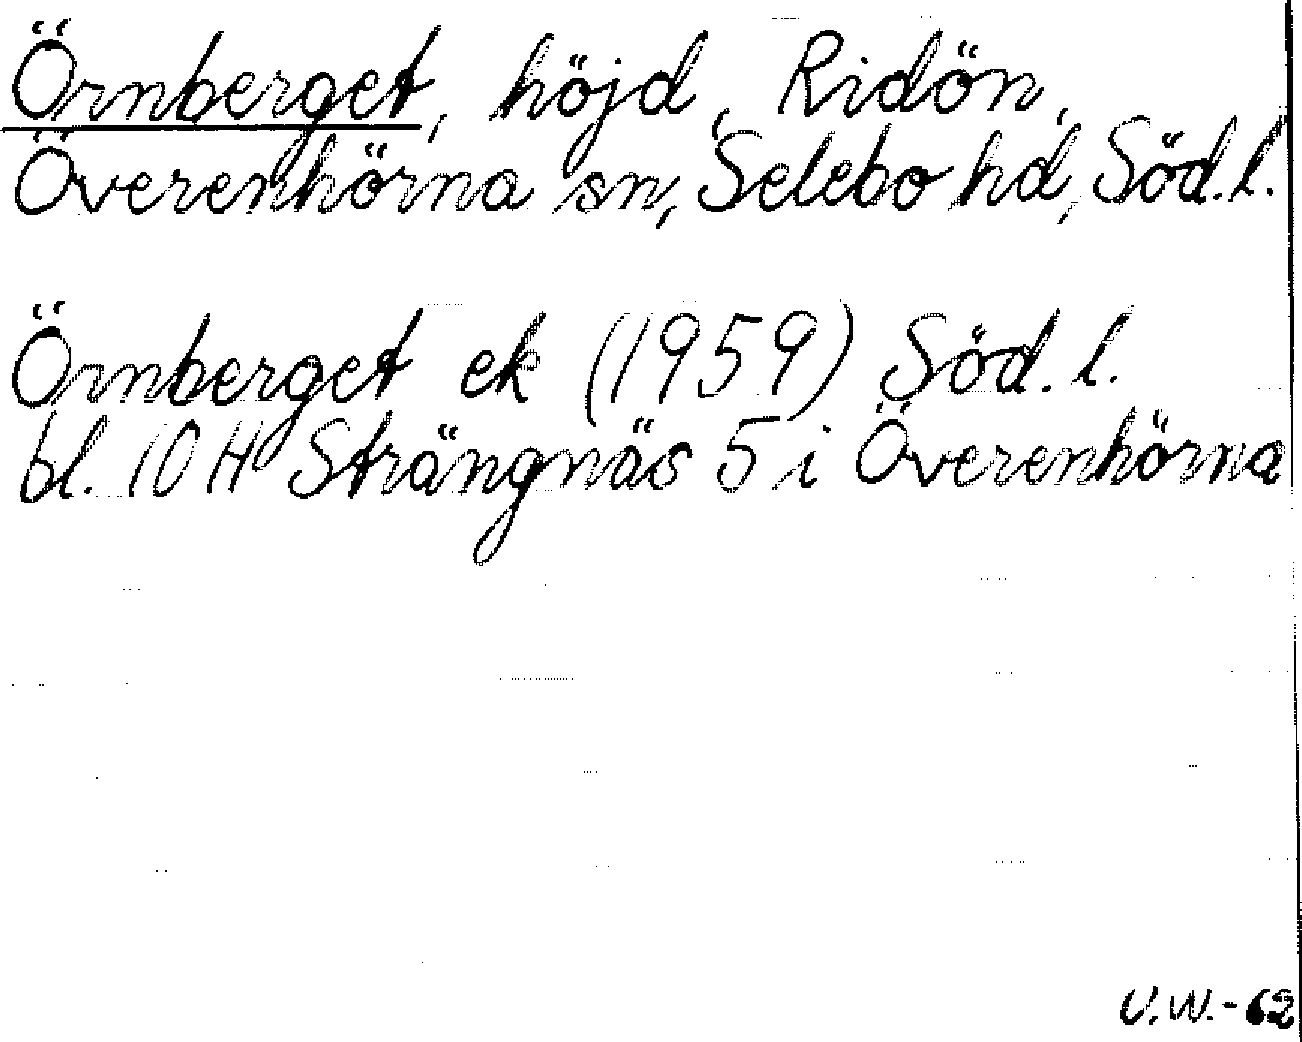 Örnberget, höjd, Ridön,
Överenhörna sn, Selebo hd, Söd.l.
Örnberget ek (1959) Söd. l.
bl. 10 H Strängnäs 5 i Överenhörna
U.W.-62